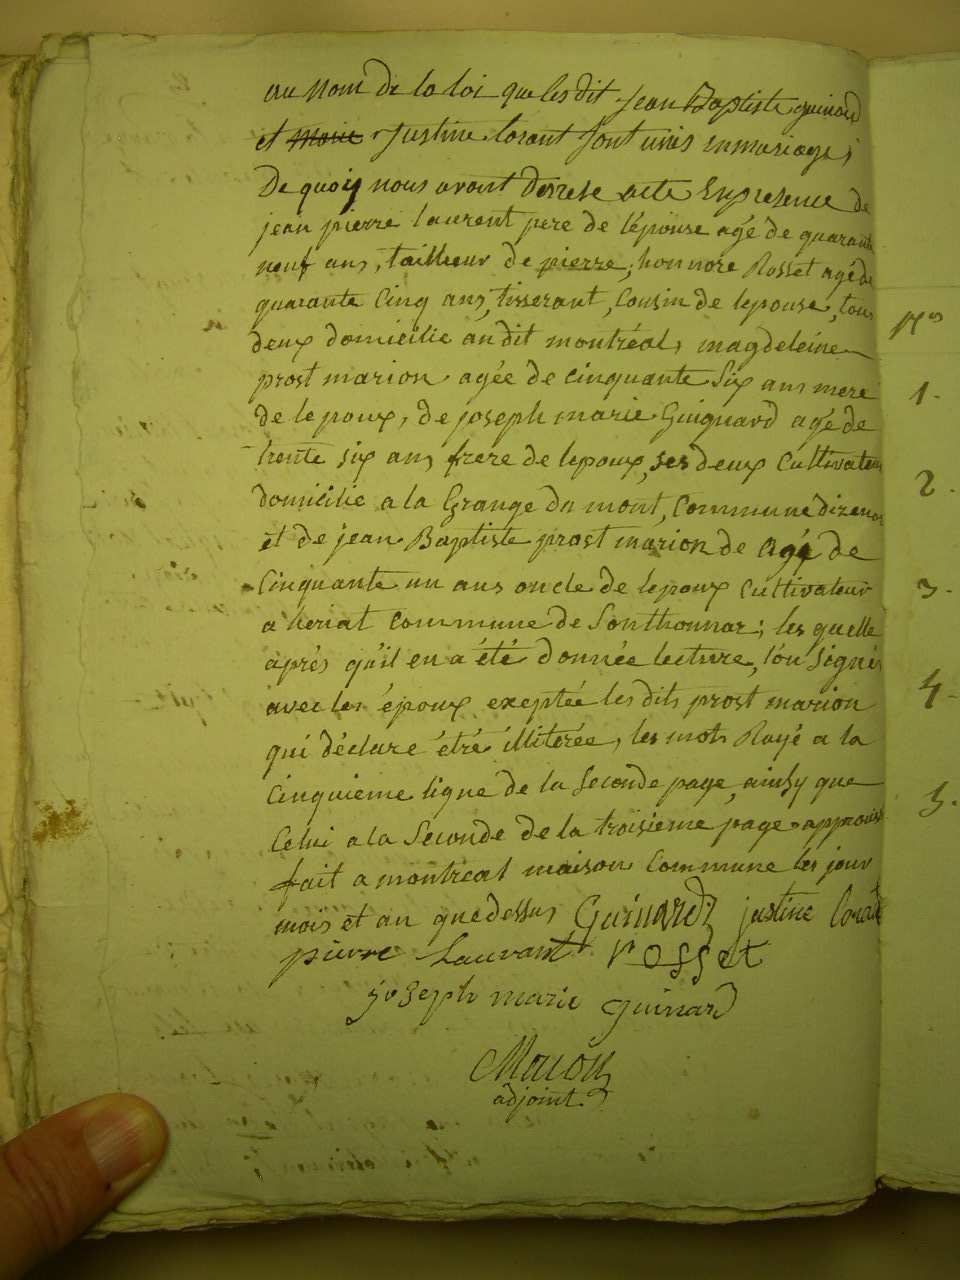 au Nom de la loi que les dit Jean Baptiste guinard
et Marie Justine lorant sont unis en mariage;
De quoij nous avont dressé acte En presence de
jean pierre laurent pere de l'épouse agé de quarante
neuf ans, tailleur de pierre; honnoré Rosset agé de
quarante Cinq ans, tisserant, Cousin de lepouse, tous
deux domicilie au dit montréal, magdeleine
prost marion agée de cinquante Six ans mere
de lepoux, de joseph marie Guignard agé de
trente six ans frere de lepoux, ses deux Cultivateur
domicilie a la Grange du mont, Commune dizenor
et de jean Baptiste prost marion de agé de
Cinquante un ans oncle de lepoux Cultivateur
a heriat Commune de Sonthonnax; les quelle
aprés qu'il en a été donnée lecture, l'on Signés
avec les époux exeptée les dits prost marion
qui déclare étré illitérée, les mots Rayé a la
Cinquieme ligne de la Seconde page, ainsy que
Celui a la Seconde de la troisieme page approuvé
fait a montreal maison Commune les jour
mois et an que dessus Guinard justine lorant
pierre Laurant rosset
joseph marie guinard
adjoint
Nos
1.
2.
3.
4.
5.